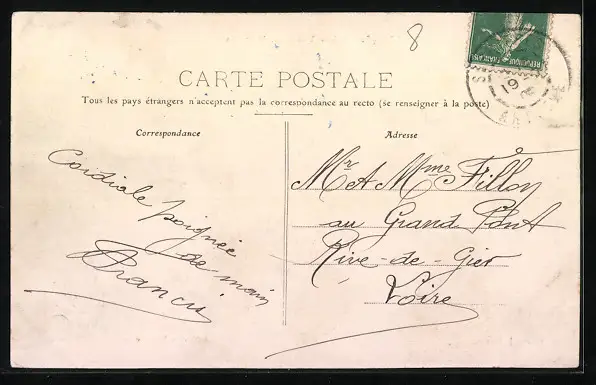 8
RÉPUBLIQUE FRANÇAISE
CARTE POSTALE
Tous les pays étrangers n'acceptent pas la correspondance au recto (se renseigner à la poste)
Correspondance
Cordiale
poignée
de main
Francis
Adresse
Mr et Mme Fillon
au Grand Pont
Rive-de-Gier
Loire